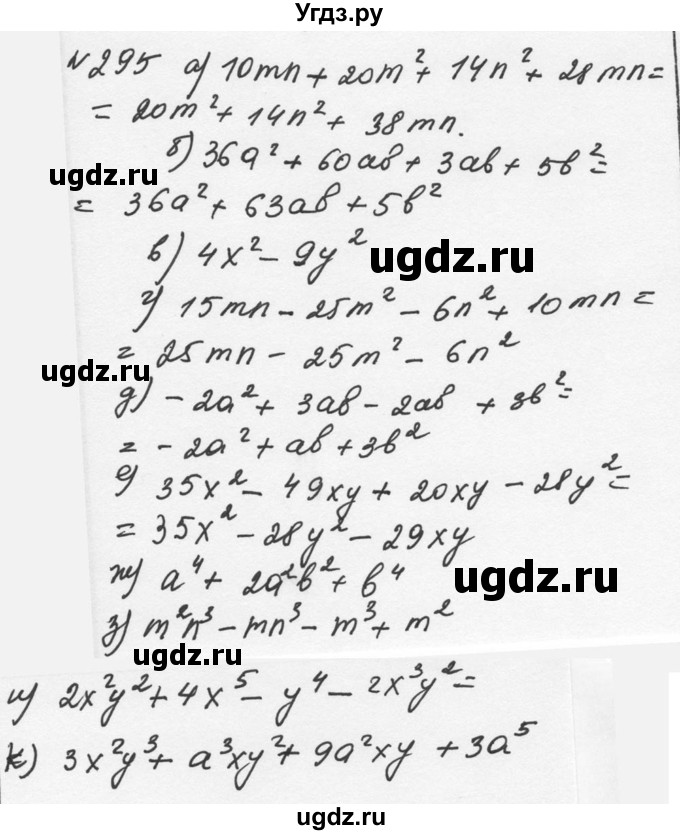 Угдз.ру
№295 а) 10mn + 20m² + 14n² + 28mn =
= 20m² + 14n² + 38mn.
б) 36a² + 60ab + 3ab + 5b² =
= 36a² + 63ab + 5b²
в) 4x² - 9y²
ugdz.ru
г) 15mn - 25m² - 6n² + 10mn =
= 25mn - 25m² - 6n²
ugdz.ru
д) -2a² + 3ab - 2ab + 3b² =
= -2a² + ab + 3b²
е) 35x² - 49xy + 20xy - 28y² =
= 35x² - 28y² - 29xy
ж) a⁴ + 2a²b² + b⁴
ugdz.ru
з) m²n³ - mn³ - m³ + m²
ugdz.ru
и) 2x²y² + 4x⁵ - y⁴ - 2x³y² =
к) 3x²y³ + a³xy² + 9a²xy + 3a⁵
ugdz.ru